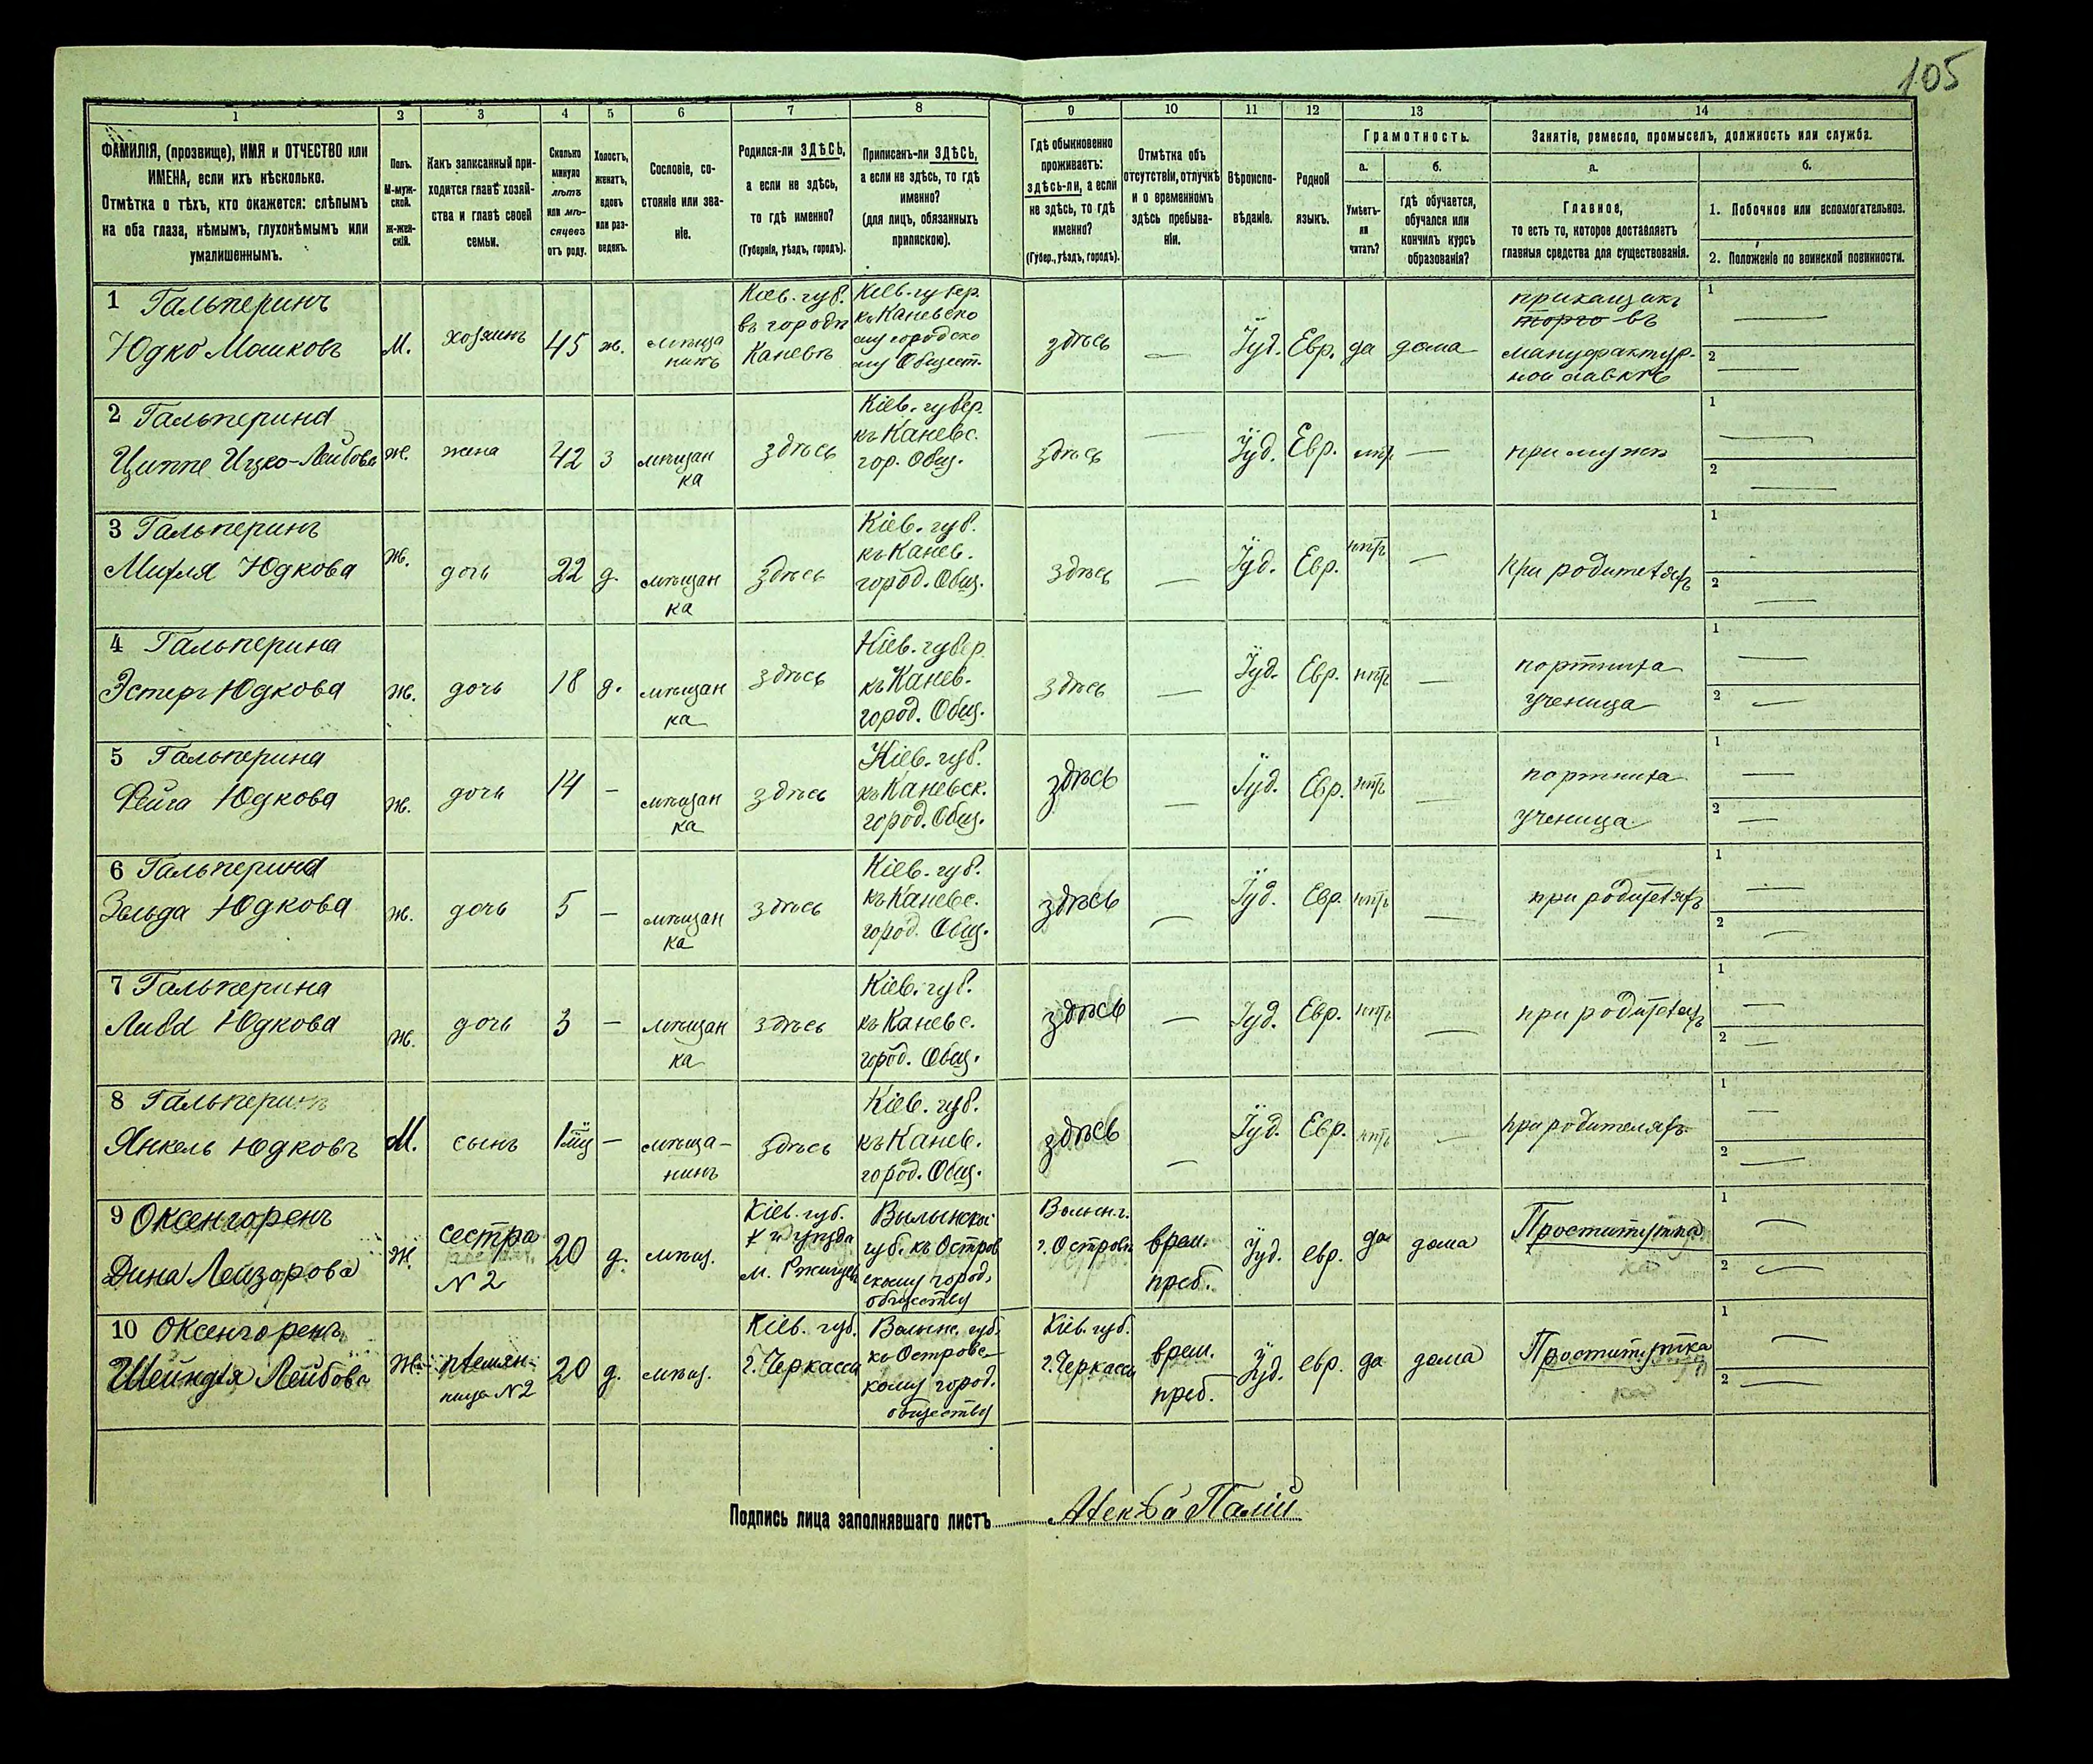 105
1
2
3
4
5
6
7
8
9
10
11
12
13
14
ФАМИЛІЯ, (прозвище), ИМЯ и ОТЧЕСТВО или
ИМЕНА, если ихъ нѣсколько.
Отмѣтка о тѣхъ, кто окажется: слѣпымъ
на оба глаза, нѣмымъ, глухонѣмымъ или
умалишеннымъ.
Полъ.
М-муж-
ской.
Ж-жен-
скій.
Какъ записанный при-
ходится главѣ хозяй-
ства и главѣ своей
семьи.
Сколько
минуло
лѣтъ
или мѣ-
сяцевъ
отъ роду.
Холостъ,
женатъ,
вдовъ
или раз-
веденъ.
Сословіе, со-
стояніе или зва-
ніе.
Родился-ли ЗДѢСЬ,
а если не здѣсь,
то гдѣ именно?
(Губернія, уѣздъ, городъ).
Приписанъ-ли ЗДѢСЬ,
а если не здѣсь, то гдѣ
именно?
(для лицъ, обязанныхъ
припискою).
Гдѣ обыкновенно
проживаетъ:
здѣсь-ли, а если
не здѣсь, то гдѣ
именно?
(Губер., уѣздъ, городъ).
Отмѣтка объ
отсутствіи, отлучкѣ
и о временномъ
здѣсь пребыва-
ніи.
Вѣроиспо-
вѣданіе.
Родной
языкъ.
Грамотность.
а.
б.
Умѣетъ-
ли
читать?
гдѣ обучается,
обучался или
кончилъ курсъ
образованія?
Занятіе, ремесло, промыселъ, должность или служба.
а.
б.
Главное,
то есть то, которое доставляетъ
главныя средства для существованія.
1. Побочное или вспомогательное.
2. Положеніе по воинской повинности.
1 Гальперинъ
Юдко Мошковъ
М.
хозяинъ
45
ж.
мѣща
нинъ
Кіев. губ.
въ городѣ
Каневѣ
Кіев. губер.
къ Каневско
му городско
му Общест.
здѣсь
—
Іуд.
Евр.
да
дома
прикащикъ
торго въ
мануфактур-
ной лавкѣ
1 —
2 —
2 Гальперина
Циппе Ицко-Лейбова
ж.
жена
42
з
мѣщан
ка
здѣсь
Кіев. губер.
къ Каневс.
гор. Общ.
здѣсь
—
Іуд.
Евр.
нтъ
—
при мужѣ
1 —
2 —
3 Гальперинъ
Митля Юдкова
ж.
дочь
22
д.
мѣщан
ка
здѣсь
Кіев. губ.
къ Канев.
город. Общ.
здѣсь
—
Іуд.
Евр.
нтъ
—
при родителяхъ
1
2 —
4 Гальперина
Эстеръ Юдкова
ж.
дочь
18
д.
мѣщан
ка
здѣсь
Кіев. губер.
къ Канев.
город. Общ.
здѣсь
—
Іуд.
Евр.
нтъ
—
портниха
ученица
1 —
2 —
5 Гальперина
Фейга Юдкова
ж.
дочь
14
—
мѣщан
ка
здѣсь
Кіев. губ.
къ Каневск.
город. Общ.
здѣсь
—
Іуд.
Евр.
нтъ
—
портниха
ученица
1 —
2 —
6 Гальперина
Зельда Юдкова
ж.
дочь
5
—
мѣщан
ка
здѣсь
Кіев. губ.
къ Каневс.
город. Общ.
здѣсь
—
Іуд.
Евр.
нтъ
—
при родителяхъ
1 —
2 —
7 Гальперина
Либа Юдкова
ж.
дочь
3
—
мѣщан
ка
здѣсь
Кіев. губ.
къ Каневс.
город. Общ.
здѣсь
—
Іуд.
Евр.
нтъ
—
при родителяхъ
1 —
2 —
8 Гальперинъ
Янкель Юдковъ
М.
сынъ
—
мѣща-
нинъ
здѣсь
Кіев. губ.
къ Канев.
город. Общ.
здѣсь
—
Іуд.
Евр.
нтъ
—
при родителяхъ
1 —
2 —
9 Оксенгоренъ
Дина Лейзорова
ж.
сестра
№ 2
20
д.
мѣщ.
Кіев. губ.
м. Ржищев
Вылынской
губ. къ Остров
скому город.
обществу
Волын. г.
г. Островъ
врем.
преб.
Іуд.
евр.
да
дома
Проститутка
1 —
2 —
10 Оксенгоренъ
Шейндля Лейбова
ж.
племян-
ница №2
20
д.
мѣщ.
Кіев. губ.
г. Черкассы
Волынс. губ.
къ Островс-
кому город.
обществу
Кіев. губ.
г. Черкассы
врем.
преб.
Іуд.
евр.
да
дома
Проститутка
1 —
2 —
Подпись лица заполнявшаго листъ Палій